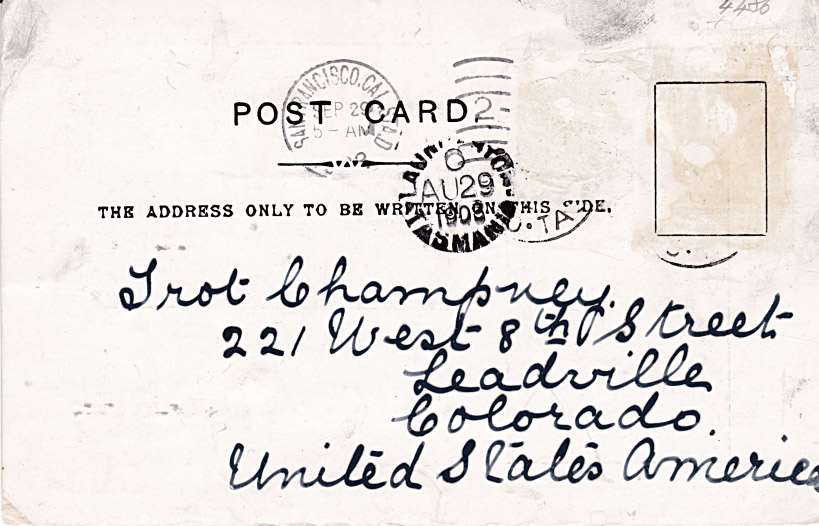 4486
SAN FRANCISCO, CAL. STA. D
SEP 29
5 - AM
POST CARD.
2
LAUNCESTON
6
AU 29
1908
TASMANIA
THE ADDRESS ONLY TO BE WRITTEN ON THIS SIDE.
Trot Champney.
221 West 8th Street
Leadville
Colorado.
United States America